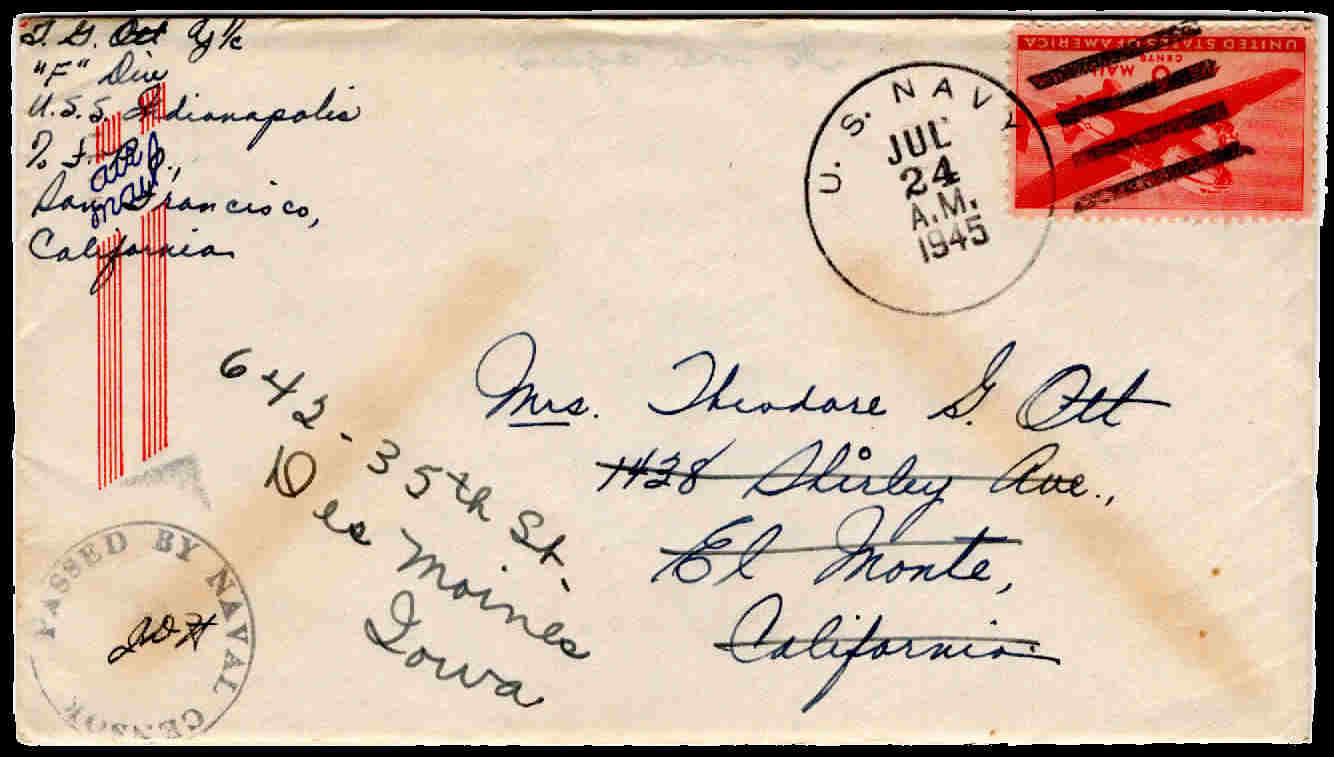 T. G. Ott Y 1/c
"F" Div
U.S.S. Indianapolis
% F.P.O.,
San Francisco,
California
air
mail
UNITED STATES OF AMERICA
6
CENTS
MAIL
U. S. NAVY
JUL
24
A.M.
1945
Mrs. Theodore G. Ott
1428 Shirley Ave.,
El Monte,
California
642-35th St.
Des Moines
Iowa
PASSED BY NAVAL CENSOR